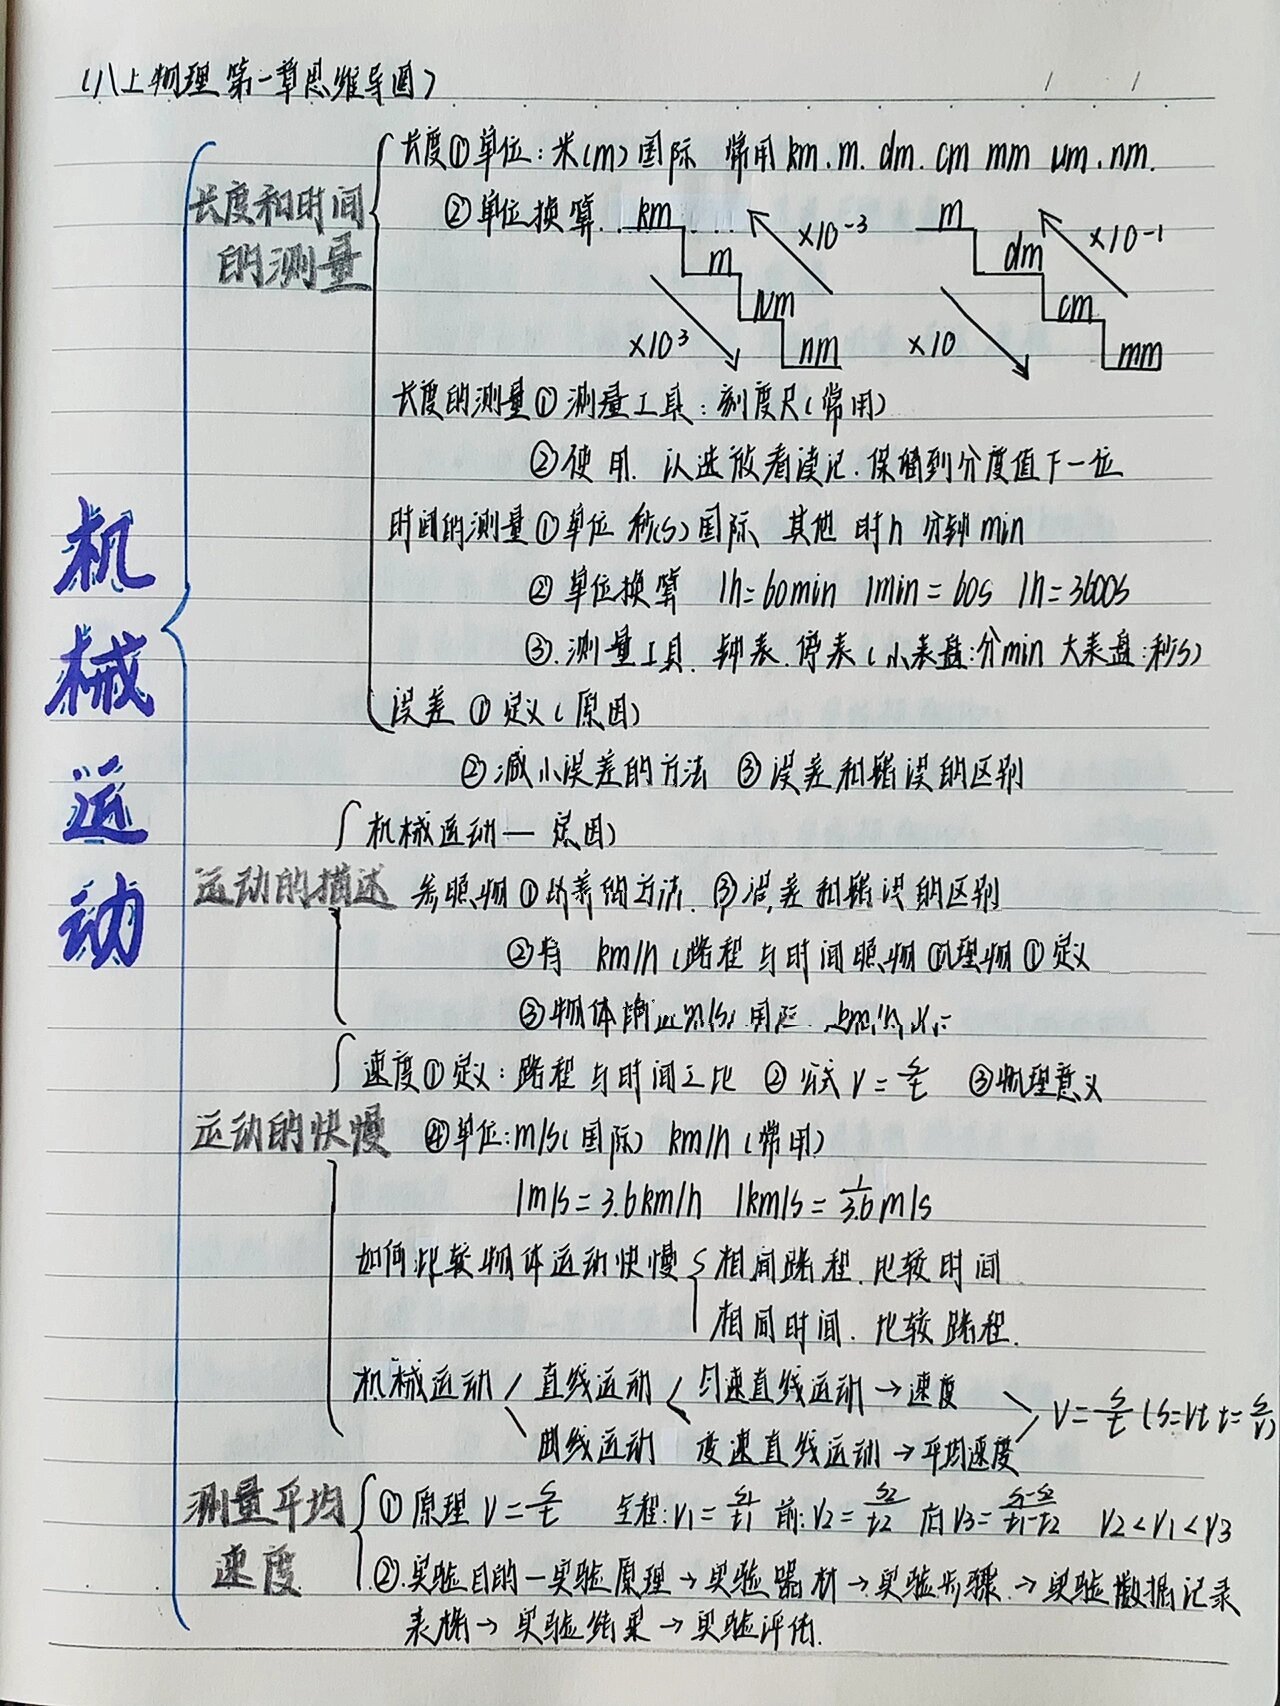 (八上物理第一章思维导图)
长度①单位:米(m)国际 常用 km.m.dm.cm mm um.nm.
长度和时间
②单位换算
km
m
×10⁻³
m
dm
×10⁻¹
的测量
um
cm
×10³
nm
×10
mm
长度的测量①测量工具:刻度尺(常用)
②使用. 认选放看读记.保留到分度值下一位
时间的测量①单位 秒(s)国际、其他 时h 分钟min
②单位换算 1h=60min 1min=60s 1h=3600s
③.测量工具.钟表.停表(小表盘:分min 大表盘:秒s)
误差①定义(原因)
②减小误差的方法 ③误差和错误的区别
机械运动
机械运动—
运动的描述
参照物① 的方法. ③误差和错误的区别
② km/h(路程与时间照物 理物①定义
③物体
速度①定义:路程与时间之比 ②公式V=s/t ③物理意义
运动的快慢
④单位:m/s(国际) km/h(常用)
1m/s=3.6km/h 1km/s=1/3.6m/s
如何比较物体运动快慢
相同路程.比较时间
相同时间.比较路程.
机械运动
直线运动
匀速直线运动→速度
V=s/t(s=vt t=s/v)
曲线运动
变速直线运动→平均速度
测量平均
速度
①原理V=s/t 全程:V1=s1/t1 前:V2=s2/t2 后V3=s1-s2/t1-t2 V2<V1<V3
②.实验目的—实验原理→实验器材→实验步骤→实验数据记录
表格→实验结果→实验评估.